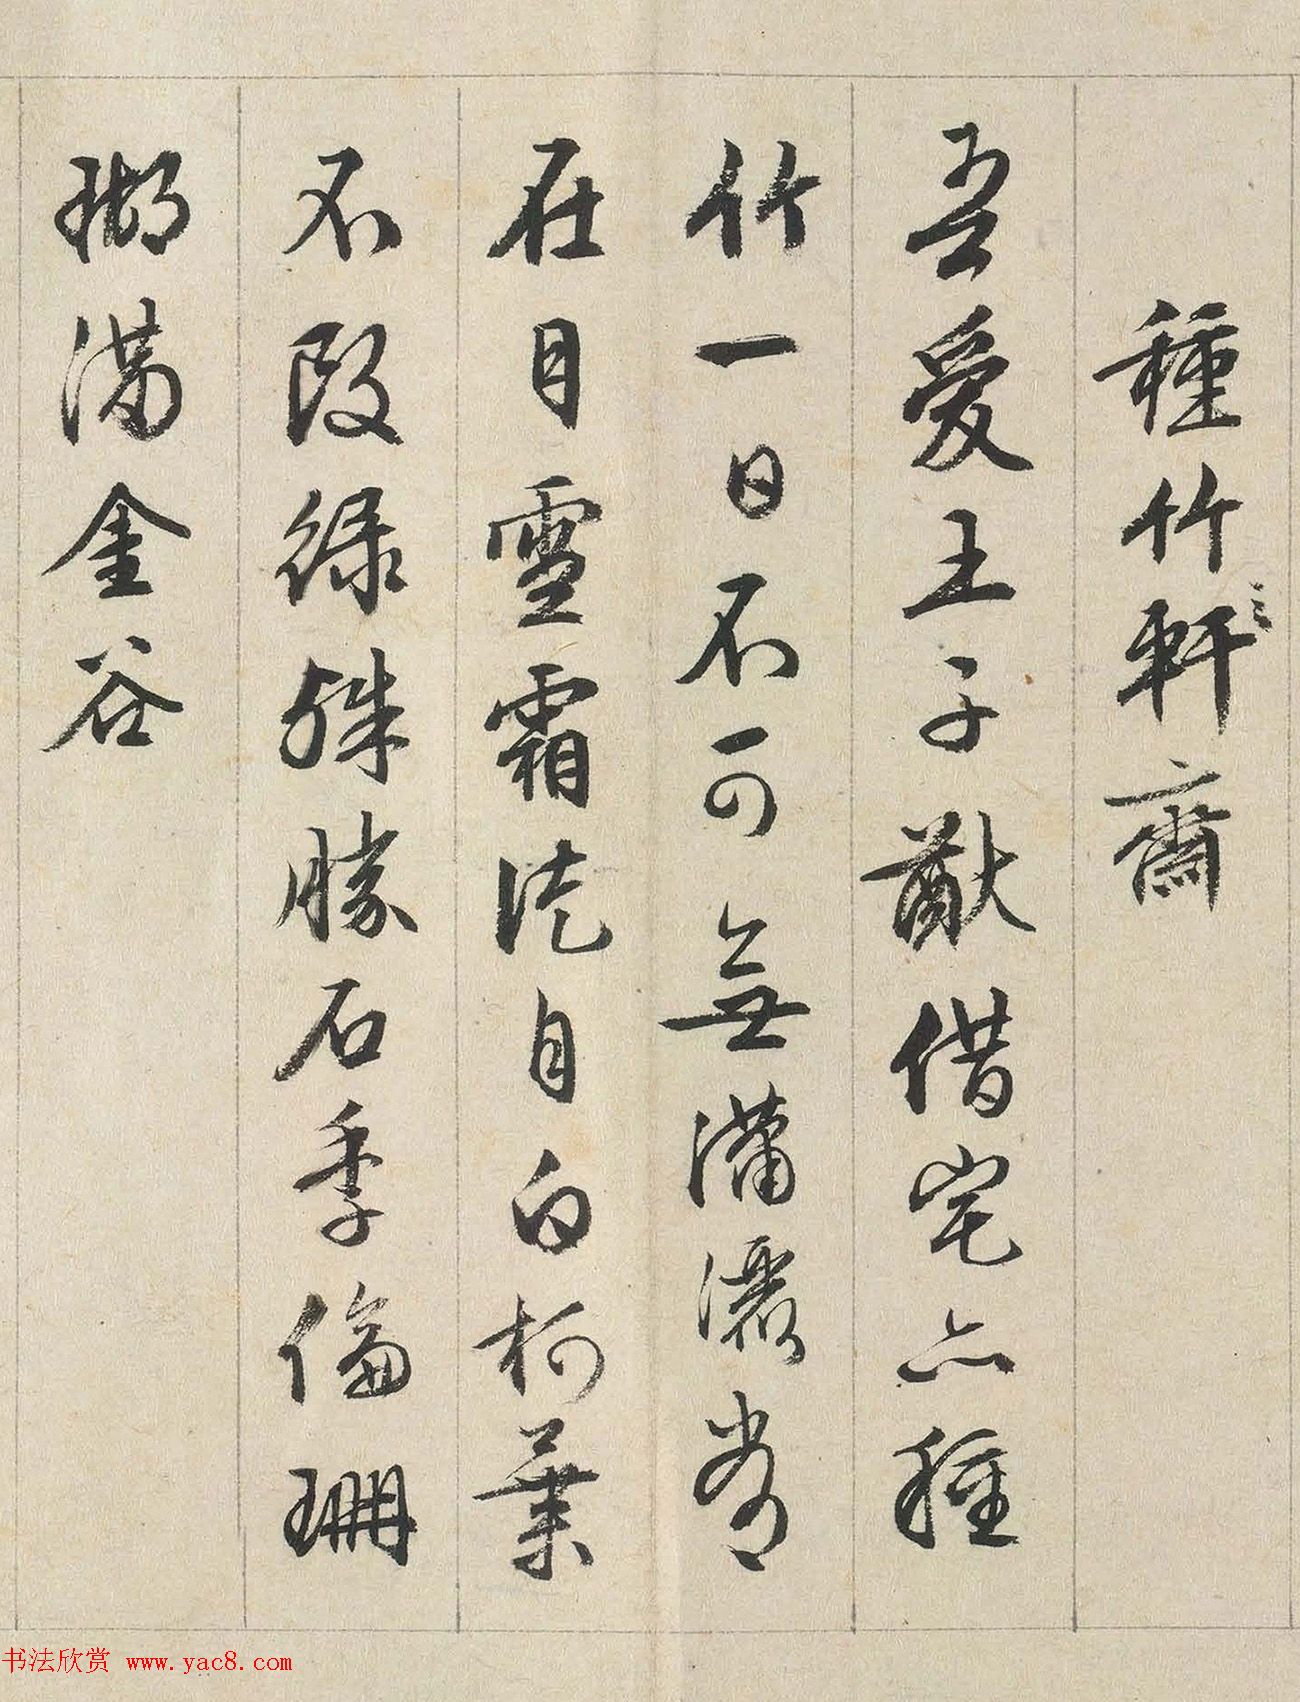 種竹軒齋
吾愛王子猷借宅亦種
竹一日不可無瀟灑常
在目雪霜徒自白柯葉
不改綠殊勝石季倫珊
瑚滿金谷
书法欣赏 www.yac8.com